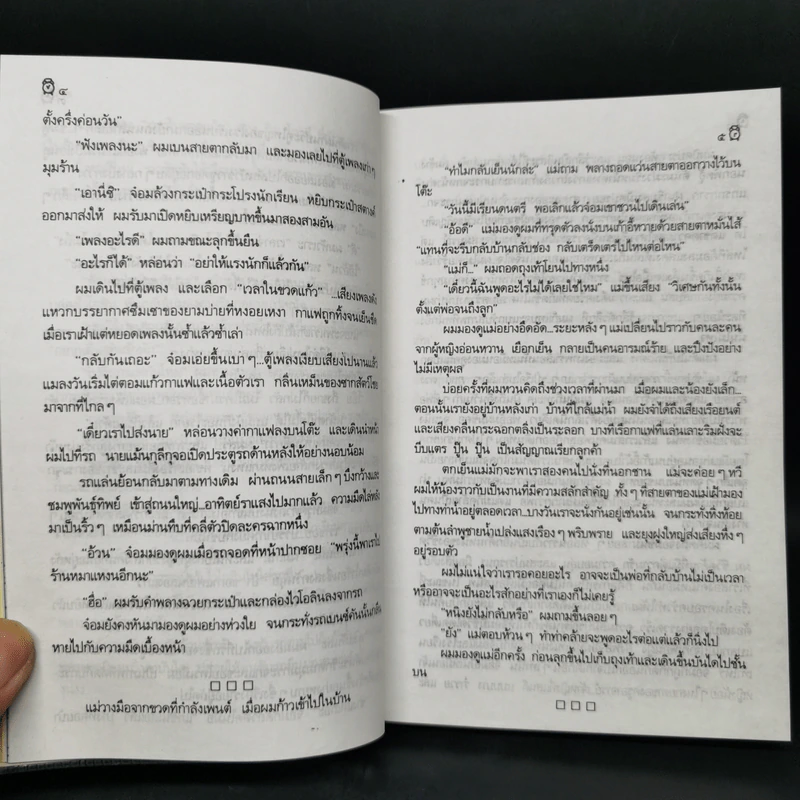 ๔
ตั้งครึ่งค่อนวัน"
"ฟังเพลงนะ" ผมเบนสายตากลับมา และมองเลยไปที่ตู้เพลงเก่าๆ
มุมร้าน
"เอานี่ซิ" จ๋อมล้วงกระเป๋ากระโปรงนักเรียน หยิบกระเป๋าสตางค์
ออกมาส่งให้ ผมรับมาเปิดหยิบเหรียญบาทขึ้นมาสองสามอัน
"เพลงอะไรดี" ผมถามขณะลุกขึ้นยืน
"อะไรก็ได้" หล่อนว่า "อย่าให้แรงนักก็แล้วกัน"
ผมเดินไปที่ตู้เพลง และเลือก "เวลาในขวดแก้ว" ...เสียงเพลงดัง
แหวกบรรยากาศซึมเซาของยามบ่ายที่หงอยเหงา กาแฟถูกทิ้งจนเย็นชืด
เมื่อเราเฝ้าแต่หยอดเพลงนั้นซ้ำแล้วซ้ำเล่า
"กลับกันเถอะ" จ๋อมเอ่ยขึ้นเบาๆ...ตู้เพลงเงียบเสียงไปนานแล้ว
แมลงวันเริ่มไต่ตอมแก้วกาแฟและเนื้อตัวเรา กลิ่นเหม็นของซากสัตว์โชย
มาจากที่ไกลๆ
"เดี๋ยวเราไปส่งนาย" หล่อนวางค่ากาแฟลงบนโต๊ะ และเดินนำหน้า
ผมไปที่รถ นายแม้นกุลีกุจอเปิดประตูรถด้านหลังให้อย่างนอบน้อม
รถแล่นย้อนกลับมาตามทางเดิม ผ่านถนนสายเล็กๆ บึงกว้างและ
ชมพูพันธุ์ทิพย์ เข้าสู่ถนนใหญ่...อาทิตย์ราแสงไปมากแล้ว ความมืดไล่หลัง
มาเป็นริ้วๆ เหมือนม่านทึบที่คลี่ตัวปิดละครฉากหนึ่ง
"อ้วน" จ๋อมมองดูผมเมื่อรถจอดที่หน้าปากซอย "พรุ่งนี้พาเราไป
ร้านหมาแหงนอีกนะ"
"ฮื่อ" ผมรับคำพลางฉวยกระเป๋าและกล่องไวโอลินลงจากรถ
จ๋อมยังคงหันมามองดูผมอย่างห่วงใย จนกระทั่งรถเบนซ์คันนั้นกลืน
หายไปกับความมืดเบื้องหน้า
แม่วางมือจากขวดที่กำลังเพนต์ เมื่อผมก้าวเข้าไปในบ้าน
๕
"ทำไมกลับเย็นนักล่ะ" แม่ถาม พลางถอดแว่นสายตาออกวางไว้บน
โต๊ะ
"วันนี้มีเรียนดนตรี พอเลิกแล้วจ๋อมเขาชวนไปเดินเล่น"
"อ้อดี" แม่มองดูผมที่ทรุดตัวลงนั่งบนเก้าอี้หวายด้วยสายตาหมั่นไส้
"แทนที่จะรีบกลับบ้านกลับช่อง กลับเตร็ดเตร่ไปไหนต่อไหน"
"แม่ก็..." ผมถอดถุงเท้าโยนไปทางหนึ่ง
"เดี๋ยวนี้ฉันพูดอะไรไม่ได้เลยใช่ไหม" แม่ขึ้นเสียง "วิเศษกันทั้งนั้น
ตั้งแต่พ่อจนถึงลูก"
ผมมองดูแม่อย่างอึดอัด...ระยะหลังๆ แม่เปลี่ยนไปราวกับคนละคน
จากผู้หญิงอ่อนหวาน เยือกเย็น กลายเป็นคนอารมณ์ร้าย และปึงปังอย่าง
ไม่มีเหตุผล
บ่อยครั้งที่ผมหวนคิดถึงช่วงเวลาที่ผ่านมา เมื่อผมและน้องยังเล็ก...
ตอนนั้นเรายังอยู่บ้านหลังเก่า บ้านที่ใกล้แม่น้ำ ผมยังจำได้ถึงเสียงเรือยนต์
และเสียงคลื่นกระฉอกตลิ่งเป็นระลอก บางทีเรือกาแฟที่แล่นเลาะริมฝั่งจะ
บีบแตร ปู๊น ปู๊น เป็นสัญญาณเรียกลูกค้า
ตกเย็นแม่มักจะพาเราสองคนไปนั่งที่นอกชาน แม่จะค่อยๆ หวี
ผมให้น้องราวกับเป็นงานที่มีความสลักสำคัญ ทั้งๆ ที่สายตาของแม่เฝ้ามอง
ไปทางท่าน้ำอยู่ตลอดเวลา...บางวันเราจะนั่งกันอยู่เช่นนั้น จนกระทั่งหิ่งห้อย
ตามต้นลำพูชายน้ำเปล่งแสงเรืองๆ พริบพราย และยุงฝูงใหญ่ส่งเสียงหึ่งๆ
อยู่รอบตัว
ผมไม่แน่ใจว่าเรารอคอยอะไร อาจจะเป็นพ่อที่กลับบ้านไม่เป็นเวลา
หรืออาจจะเป็นอะไรสักอย่างที่เราเองก็ไม่เคยรู้
"หนิงยังไม่กลับหรือ" ผมถามขึ้นลอยๆ
"ยัง" แม่ตอบห้วนๆ ทำท่าคล้ายจะพูดอะไรต่อแต่แล้วก็นิ่งไป
ผมมองดูแม่อีกครั้ง ก่อนลุกขึ้นไปเก็บถุงเท้าและเดินขึ้นบันไดไปชั้น
บน